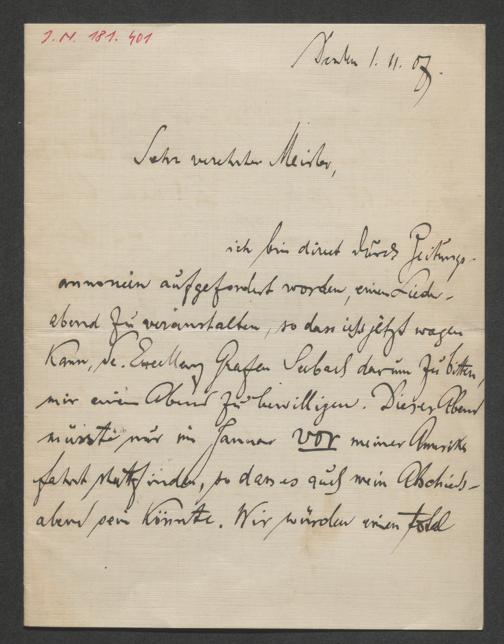 J. N. 181. 401
Dresden 1. 11. 07.
Sehr verehrter Meister,
ich bin direct durch Zeitungs-
annoncen aufgefordert worden, einen Lieder-
abend zu veranstalten, so dass ich jetzt wagen
kann, Se. Excellenz Grafen Seebach darum zu bitten,
mir einen Abend zu bewilligen. Dieser Abend
müsste nur im Januar vor meiner Amerika
fahrt stattfinden, so dass es auch mein Abschieds-
abend sein könnte. Wir würden einen